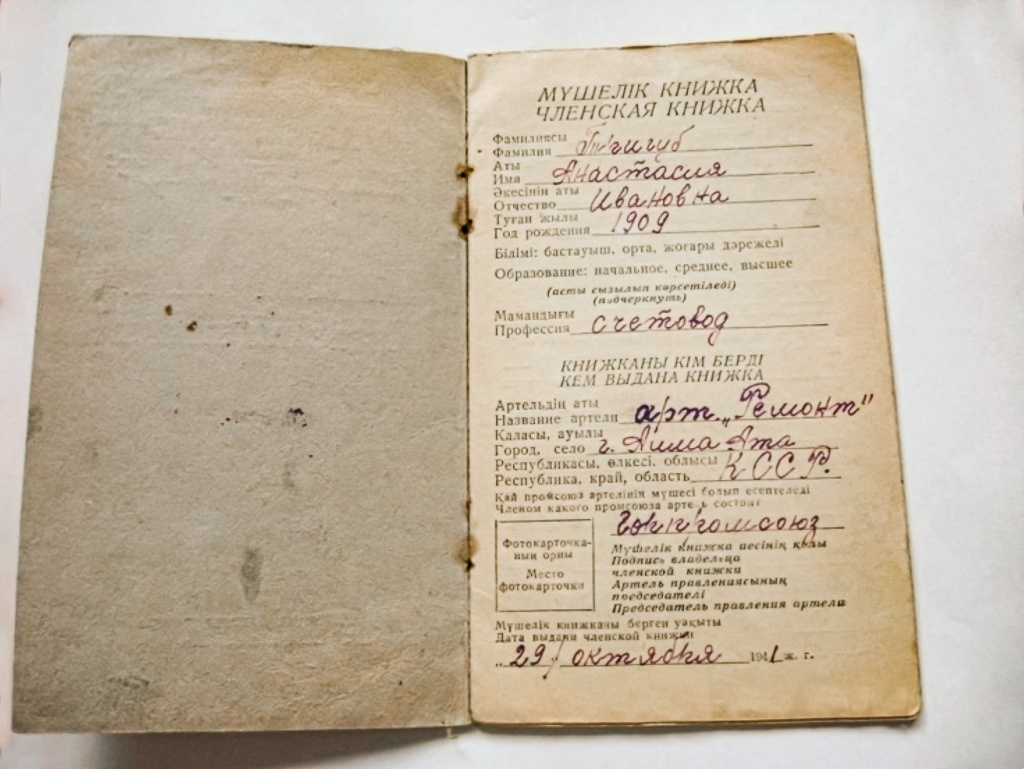 МҮШЕЛІК КНИЖКА
ЧЛЕНСКАЯ КНИЖКА
Фамилиясы
Фамилия
Аты
Имя Анастасия
Әкесінің аты
Отчество Ивановна
Туған жылы
Год рождения 1909
Білімі: бастауыш, орта, жоғары дәрежелі
Образование: начальное, среднее, высшее
(асты сызылып көрсетіледі)
(подчеркнуть)
Мамандығы
Профессия счетовод
КНИЖКАНЫ КІМ БЕРДІ
КЕМ ВЫДАНА КНИЖКА
Артельдің аты
Название артели арт. „Ремонт"
Қаласы, ауылы
Город, село г. Алма Ата
Республикасы, өлкесі, облысы
Республика, край, область К ССР.
Қай промсоюз артелінің мүшесі болып есептеледі
Членом какого промсоюза артель состоит
Фотокарточка-
ның орны
Место
фотокарточки
Мүшелік книжка иесінің қолы
Подпись владельца
членской книжки
Артель правлениясының
председателі
Председатель правления артели
Мүшелік книжканы берген уақыты
Дата выдачи членской книжки
„29" октября 1941 ж. г.